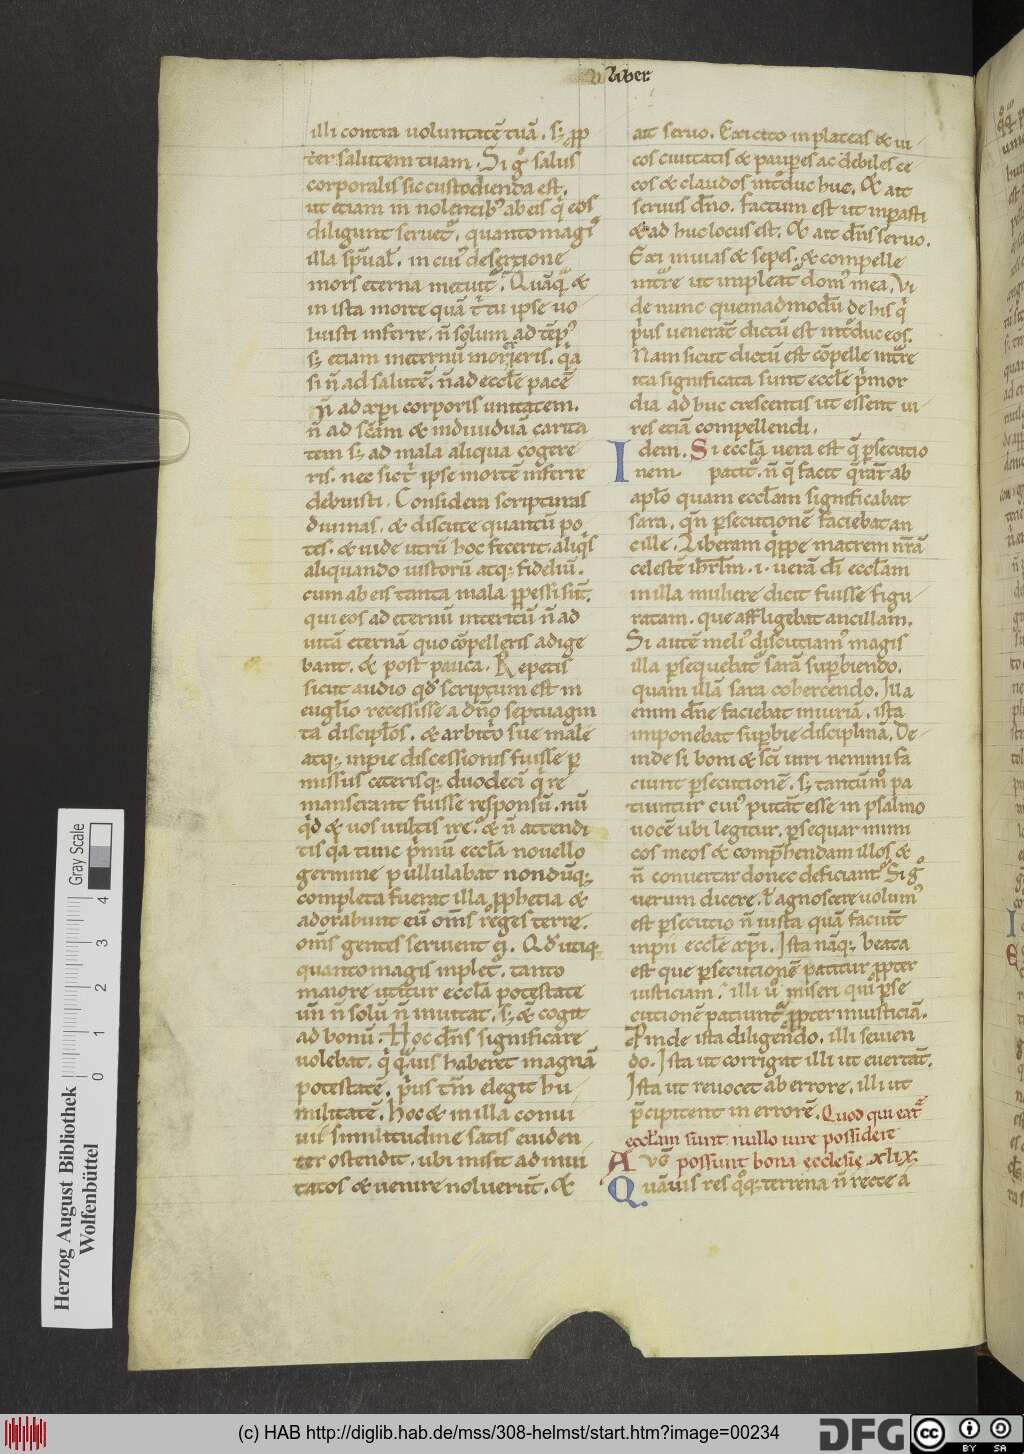 Liber
illi contra uoluntatē tuā. s; ꝓp
ter salutem tuam. Si gͦ salus
corporalis sic custodienda est.
ut etiam in nolentibꝰ ab eis qͥ eos
diligunt seruetᷣ. quanto magiˢ
illa spūal'. in cuiꝰ desertione
mors eterna metuitᷣ. Quāqᷓ &
in ista morte quā tͥ tu ipse uo
luisti inferre. ñ solum ad tēpꝰ
s; etiam ineternū morͤreris. qͥa
si ñ ad salutē. ñ ad eccl'e pacē
ñ ad xp̄i corporis unitatem.
ñ ad sc̄am & indiuiduā carita
tem s; ad mala aliqua cogere
ris. nec sic tͥ ipse mortē inferre
debuisti. Considera scripturas
diuinas. & discute quantū po
tes. & uide utrū hoc fecerit aliqͥs
aliquando iustorū atq; fideliū.
cum ab eis tanta mala ꝑpessi sūt.
qui eos ad eternū interitū ñ ad
uitā eternā quo cōpelleris adige
bant. & post pauca. Repetis
sicut audio qd' scriptum est in
euglio recessisse a dño septuagin
ta discip'los. & arbitͥo sue male
atq; inpie discessionis fuisse ꝑ
missus ceterisq; duodeci qͥ re
manserant fuisse responsū. nū
qͥd & uos uultis ire. & ñ attendi
tis qͥa tunc pͥmū eccl'a nouello
germine pullulabat nondūq;
completa fuerat illa ꝓphetia &
adorabunt eū om̄s reges terre.
om̄s gentes seruient ei. Qd' utiq;
quanto magis inpletᷣ. tanto
maiore utitur eccl'a potestate
uñ ñ solū ñ inuitat. s; & cogit
ad bonū. Hoc dñs significare
uolebat. qͥ qᷓuis haberet magnā
potestatē. pͥus tm̄ elegit hu
militatē. hoc & in illa conui
uii similitudine satis euiden
ter ostendit. ubi misit ad inui
tatos & uenire noluerūt. &
ait seruo. Exi cito in plateas & ui
cos ciuitatis & pauꝑes ac debiles ce
cos & claudos intͦduc huc. & ait
seruus dño. factum est ut inpasti
& ad huc locus est. & ait dñs seruo.
Exi in uias & sepes. & compelle
intͣre ut impleatᷣ domꝰ mea. Vi
de nunc quemadmodū de his qͥ
pͥus uenerāt dictū est intͦduc eos.
Nam sicut dictū est cōpelle intͣre
ita significata sunt eccl'e pͥmor
dia ad huc crescentis ut essent ui
res etiā compellendi.
Idem. Si eccl'a uera est q̄ ꝑsecutio
nem patitᷣ. ñ q̄ facit qͣrat ab
apl'o quam eccl'am significabat
sara. qñ ꝑsecutionē faciebat an
cille. Liberam qͥppe matrem nr̄ā
celestē ihrl'm. i. uerā di eccl'am
in illa muliere dicit fuisse figu
ratam. que affligebat ancillam.
Si autē meliꝰ discutiamꝰ magis
illa ꝑsequebatᷣ sarā suꝑbiendo.
quam illā sara cohercendo. Illa
enim dñe faciebat iniuriā. ista
imponebat suꝑbie disciplinā. De
inde si boni & sc̄i uiri nemini fa
ciunt ꝑsecutionē. s; tantūmͦ pa
tiuntur cuiꝰ putāt esse in psalmo
uocē ubi legitur. ꝑsequar inimi
cos meos & comp̄hendam illos &
ñ conuertar donec deficiant. Si gͦ
uerum dicere. ł agnoscere uolumꝰ
est ꝑsecutio iniusta quā faciūt
inpii eccl'e xp̄i. Ista nāq; beata
est que ꝑsecutionē patitur ꝓpter
iusticiam. illi uͦ miseri quͥ ꝑse
cutionē patiuntᷣ ꝓpter iniusticiā.
Proinde ista diligendo. illi seuien
do. Ista ut corrigat illi ut euertāt.
Ista ut reuocet ab errore. illi ut
p̄cipitent in errorē. Quod qui extᷓ
eccl'am sunt nullo iure possidere
possunt bona ęcclesię. xlix.
AVG
Quāuis res qͦq; terrena ñ recte a
Herzog August Bibliothek
Wolfenbüttel
0 1 2 3 4
Gray Scale
(c) HAB http://diglib.hab.de/mss/308-helmst/start.htm?image=00234
DFG
cc
BY SA